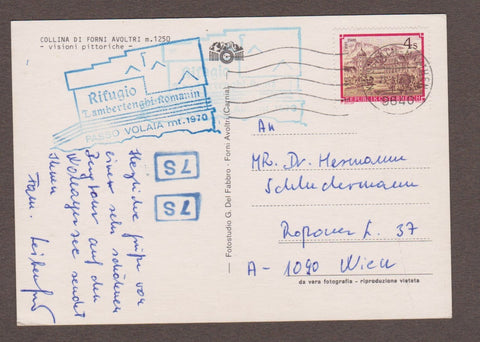 COLLINA DI FORNI AVOLTRI m.1250
- visioni pittoriche -
Rifugio
Lambertenghi-Romanin
PASSO VOLAIA mt. 1970
Rifugio
1970
4s
REPUBLIK ÖSTERREICH
9640
7S
7S
Herzliche Grüße von
einer sehr schönen
Bergtour auf den
Wolayersee sendet
Ihnen
Fam.
— Fotostudio G. Del Fabbro - Forni Avoltri (Carnia) —
An
MR. Dr. Hermann
Schludermann
L. 37
A - 1090 Wien
da vera fotografia - riproduzione vietata